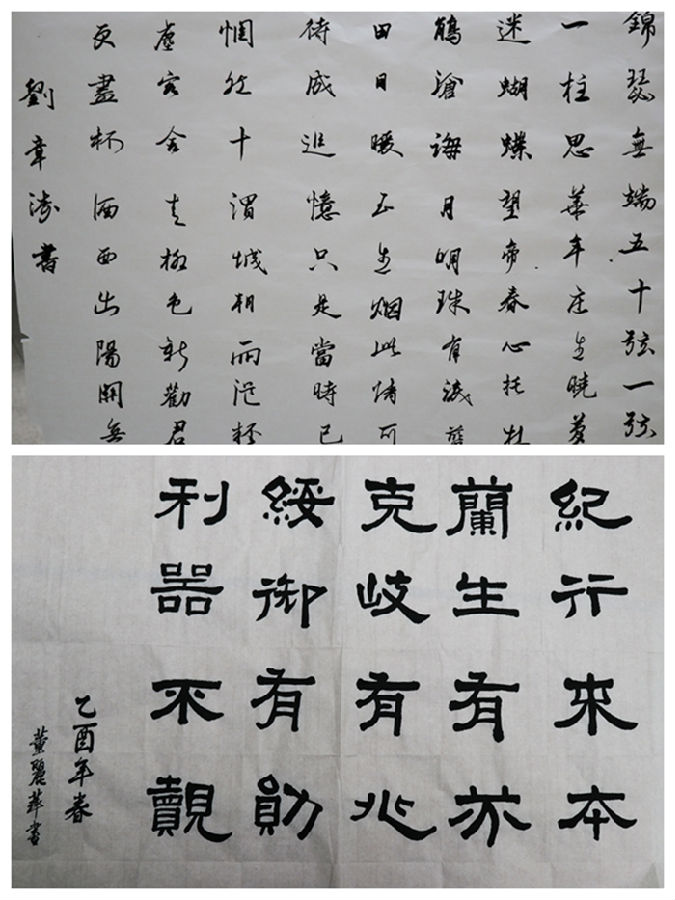 錦瑟無端五十弦一弦
一柱思華年庄生曉夢
迷蝴蝶望帝春心托杜
鵑滄海月明珠有淚藍
田日暖玉生烟此情可
待成追憶只是當時已
惘然十渭城朝雨浥輕
塵客舍青柳色新勸君
更盡杯酒西出陽關無
劉章濤書
紀行來本
蘭生有亦
克岐有兆
綏御有勛
利器不覿
乙酉年春
董麗華書